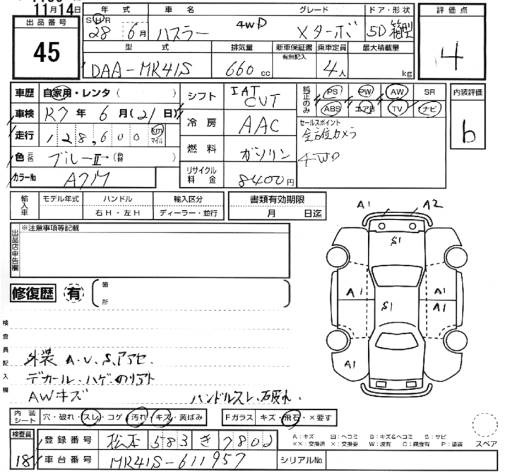 11月14日
出品番号
45
年式 車名 グレード ドア・形状
28年 6月 ハスラー 4WD Xターボ 5D 箱型
型式 排気量 新車保証書 有無記入 乗車定員 最大積載量
DAA-MR41S 660cc 4人 kg
評価点
4
車歴 自家用・レンタ
車検 R7年 6月(21日)
走行 128,600 km マイル
色 元色 ブルーII
カラーNo
シフト IAT CVT
冷房 AAC
燃料 ガソリン
リサイクル料金 8400円
純正のみ PS PW AW SR
ABS エアB TV ナビ
セールスポイント
全方位カメラ
4WD
内装評価
b
輸入車 モデル年式 ハンドル 右H・左H 輸入区分 ディーラー・並行
書類有効期限
月 日迄
出品店申告欄
※注意事項等記載
修復歴 有 箇所
検査員記入欄
外装 A.U.S.アアセ
デカール・ハゲ
AWキズ ハンドルスレ・破れ
A1 A2
S1
A1 S1 A1
A1
内装シート 穴・破れ・スレ・コゲ・汚れ・キズ・黄ばみ
Fガラス キズ・飛石・×要す
スペア
検査員
181
登録番号 松本 583 き 7802
車台番号 MR41S-611957
シリアルNo.